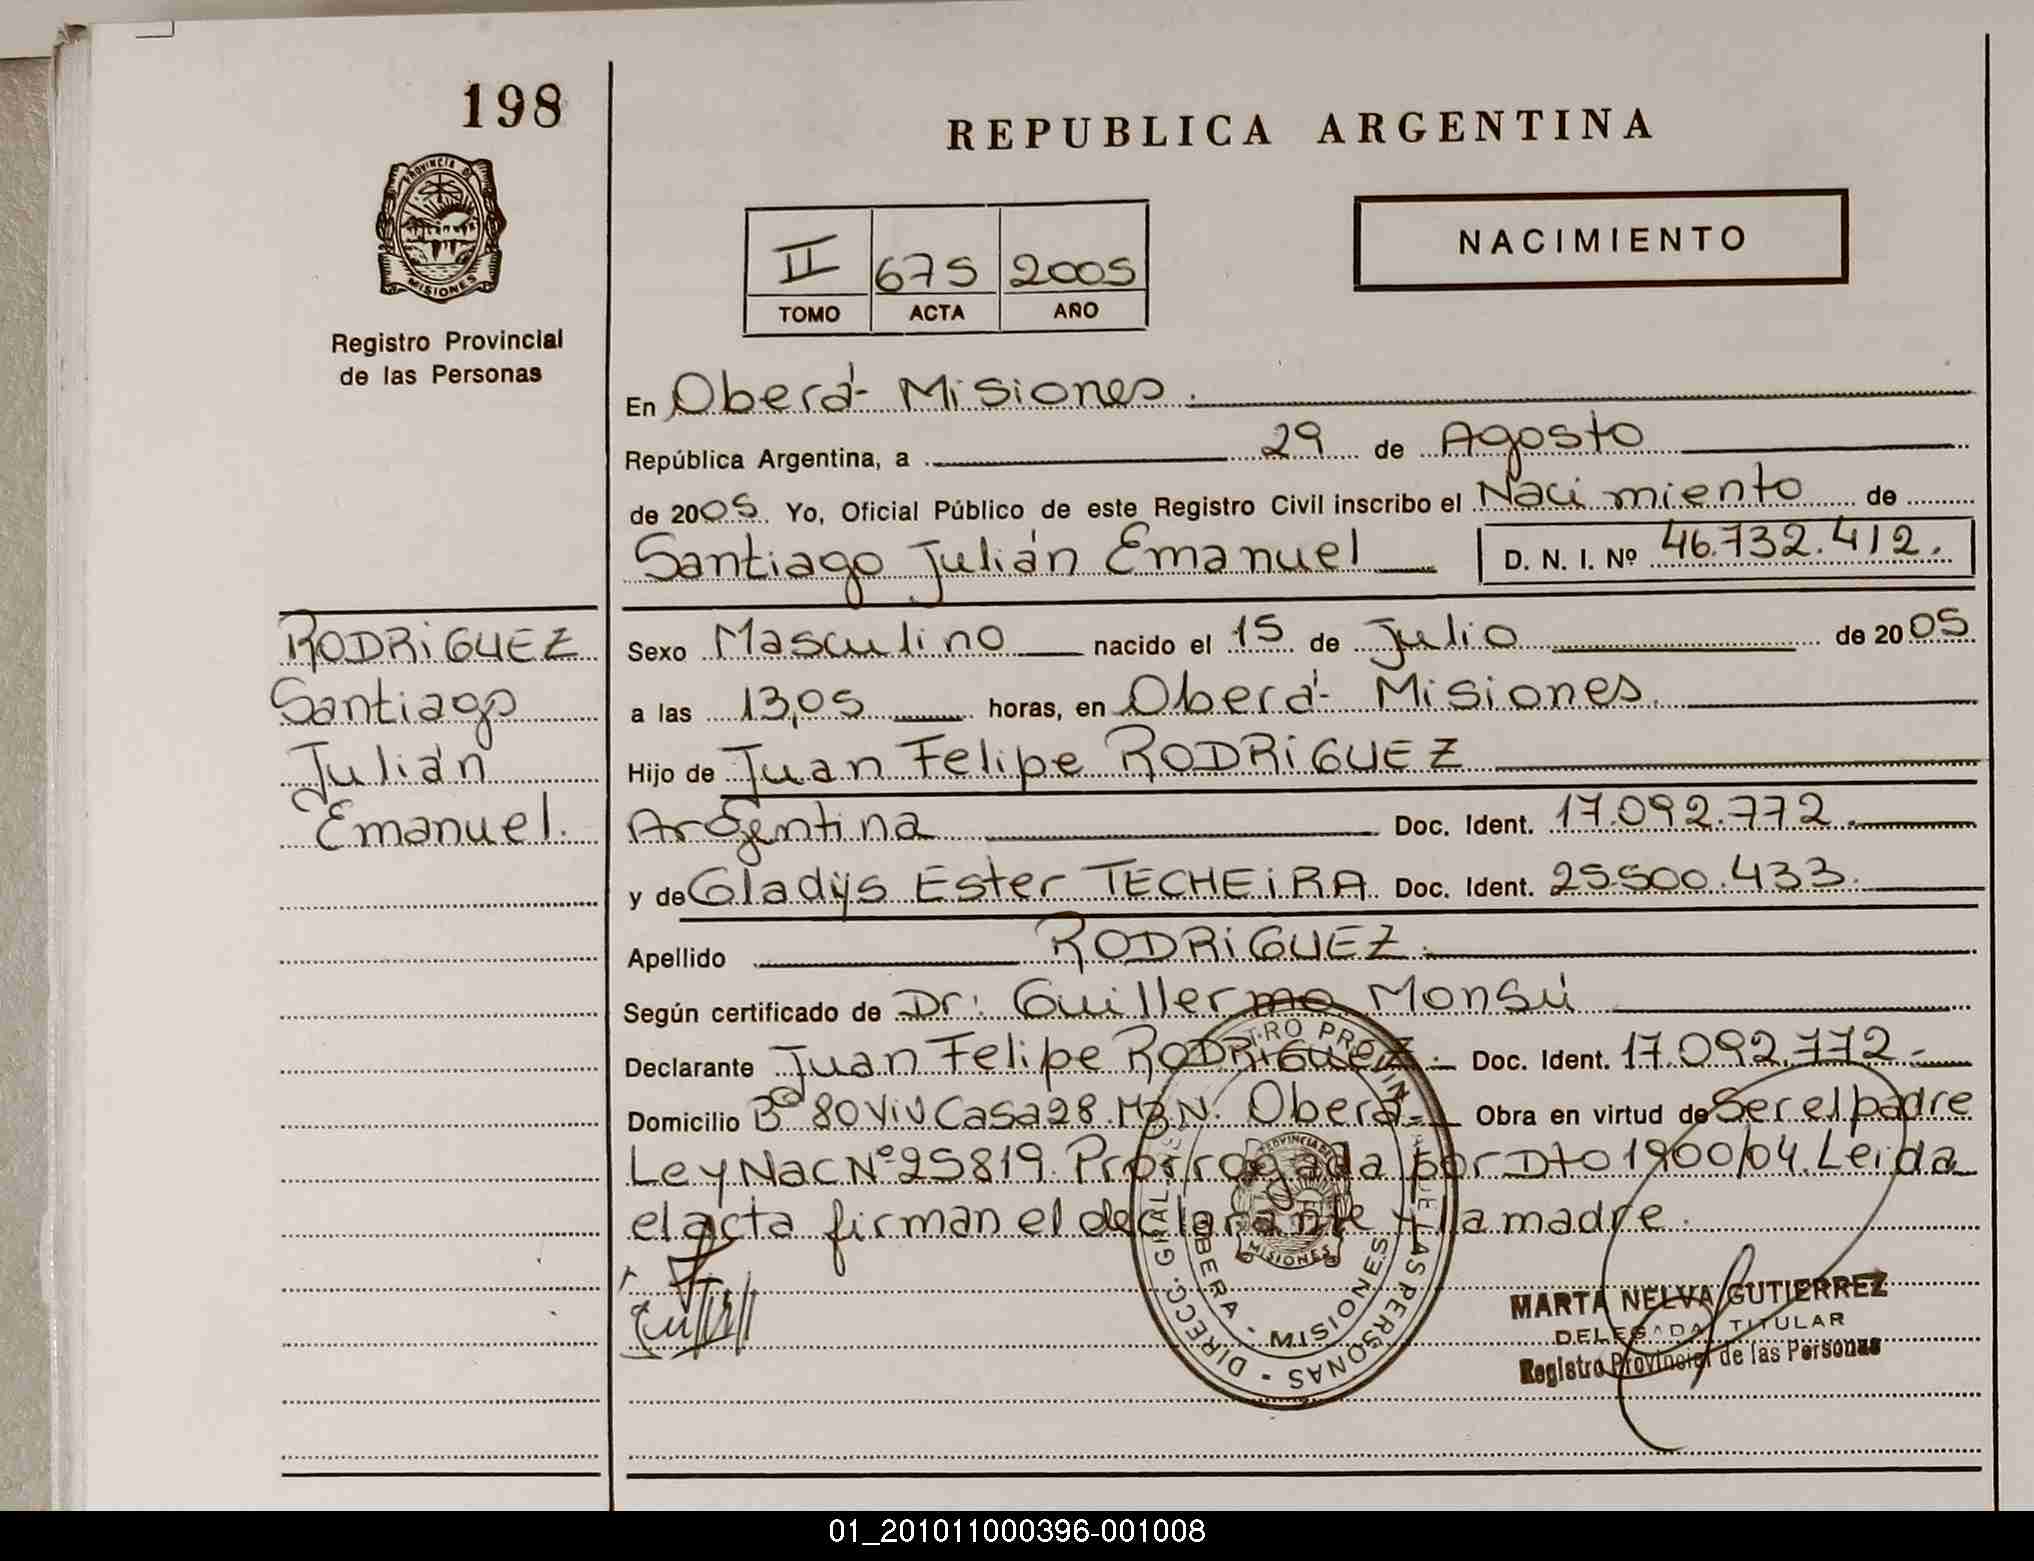 198
PROVINCIA DE
MISIONES
Registro Provincial
de las Personas
REPUBLICA ARGENTINA
II 675 2005
TOMO ACTA AÑO
NACIMIENTO
En Oberá- Misiones.
República Argentina, a 29 de Agosto
de 2005 Yo, Oficial Público de este Registro Civil inscribo el Nacimiento de
Santiago Julián Emanuel D. N. I. Nº 46.732.412.
RODRIGUEZ
Santiago
Julián
Emanuel.
Sexo Masculino nacido el 15 de Julio de 2005
a las 13,05 horas, en Oberá- Misiones.
Hijo de Juan Felipe RODRIGUEZ
Argentina Doc. Ident. 17.092.772.
y de Gladys Ester TECHEIRA Doc. Ident. 25.500.433.
Apellido RODRIGUEZ.
Según certificado de Dr. Guillermo Monsú
Declarante Juan Felipe RODRIGUEZ. Doc. Ident. 17.092.772-
Domicilio Bº 80 Viv Casa 28. Oberá- Obra en virtud de Ser el padre
Ley Nac Nº 25819. Prorrogada por Dto 1900/04. Leida
el acta firman el declarante y la madre.
DIRECC. GRAL. PROVINCIA DE LAS PERSONAS
OBERA - MISIONES
PROVINCIA DE
MISIONES
MARTA NELVA GUTIERREZ
DELEGADA TITULAR
Registro Provincial de las Personas
01_201011000396-001008